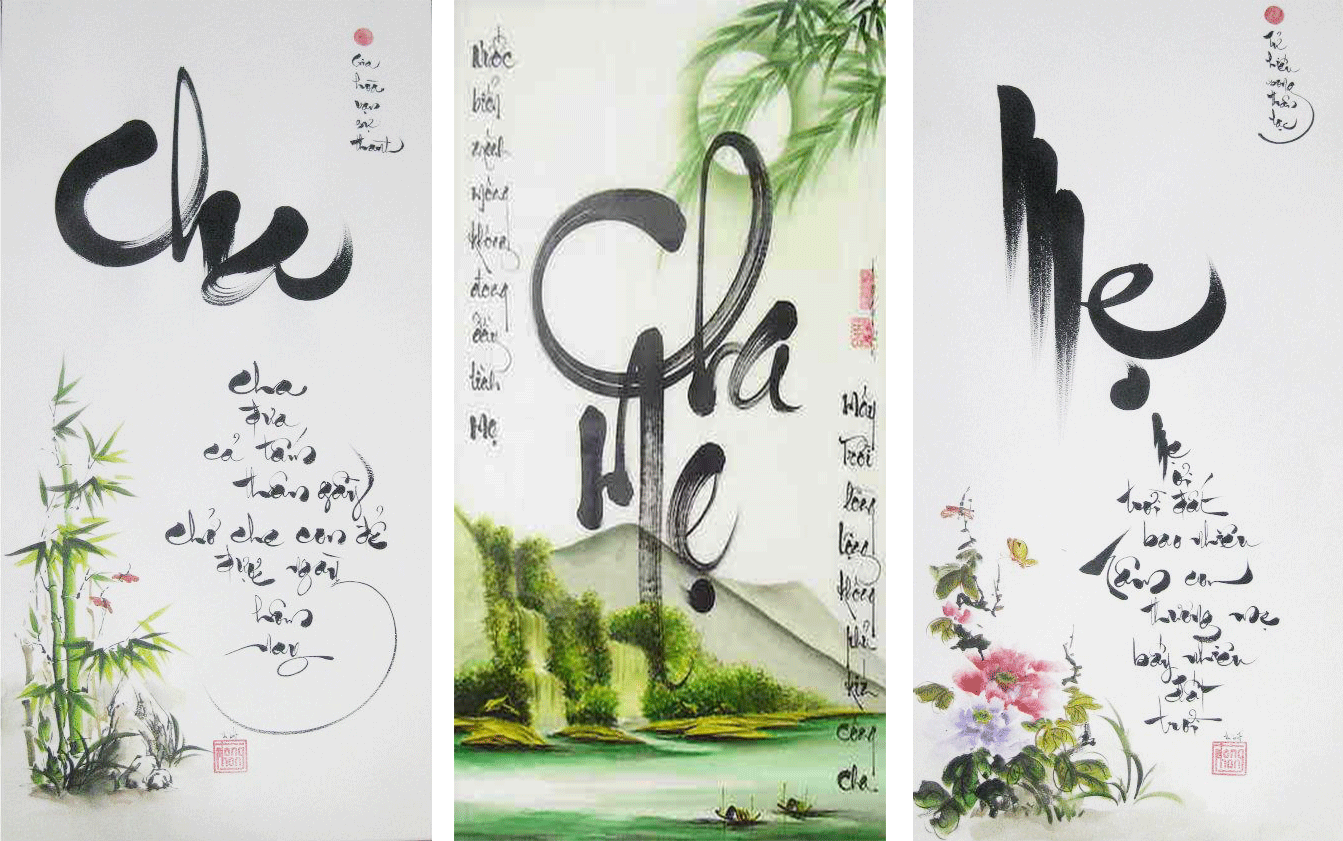 Cha
Gia
hòa
vạn
sự
thành
cha
đưa
cả tấm
thân gầy
chở che con để
được ngày
hôm
nay
Cha
Mẹ
Nước
biển
mênh
mông
không
đong
đầy
tình
Mẹ
Mây
Trời
lồng
lộng
không
phủ
kín
công
Cha
Mẹ
Tử
hiếu
song
thân
lạc
Mẹ
ơi
trời đất
bao nhiêu
tấm con
thương mẹ
bấy nhiêu
đất
trời